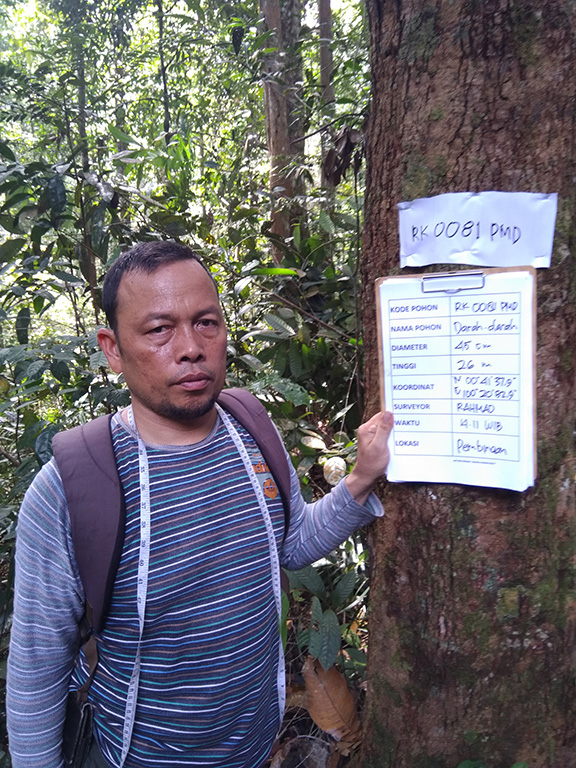 RK 0081 PMD
KODE POHON RK 0081 PMD
NAMA POHON Darah-darah
DIAMETER 45 cm
TINGGI 26 m
KOORDINAT N 00°41'37,9"
E 100°20'82,9"
SURVEYOR RAHMAD
WAKTU 14.11 WIB
LOKASI Pembinaan